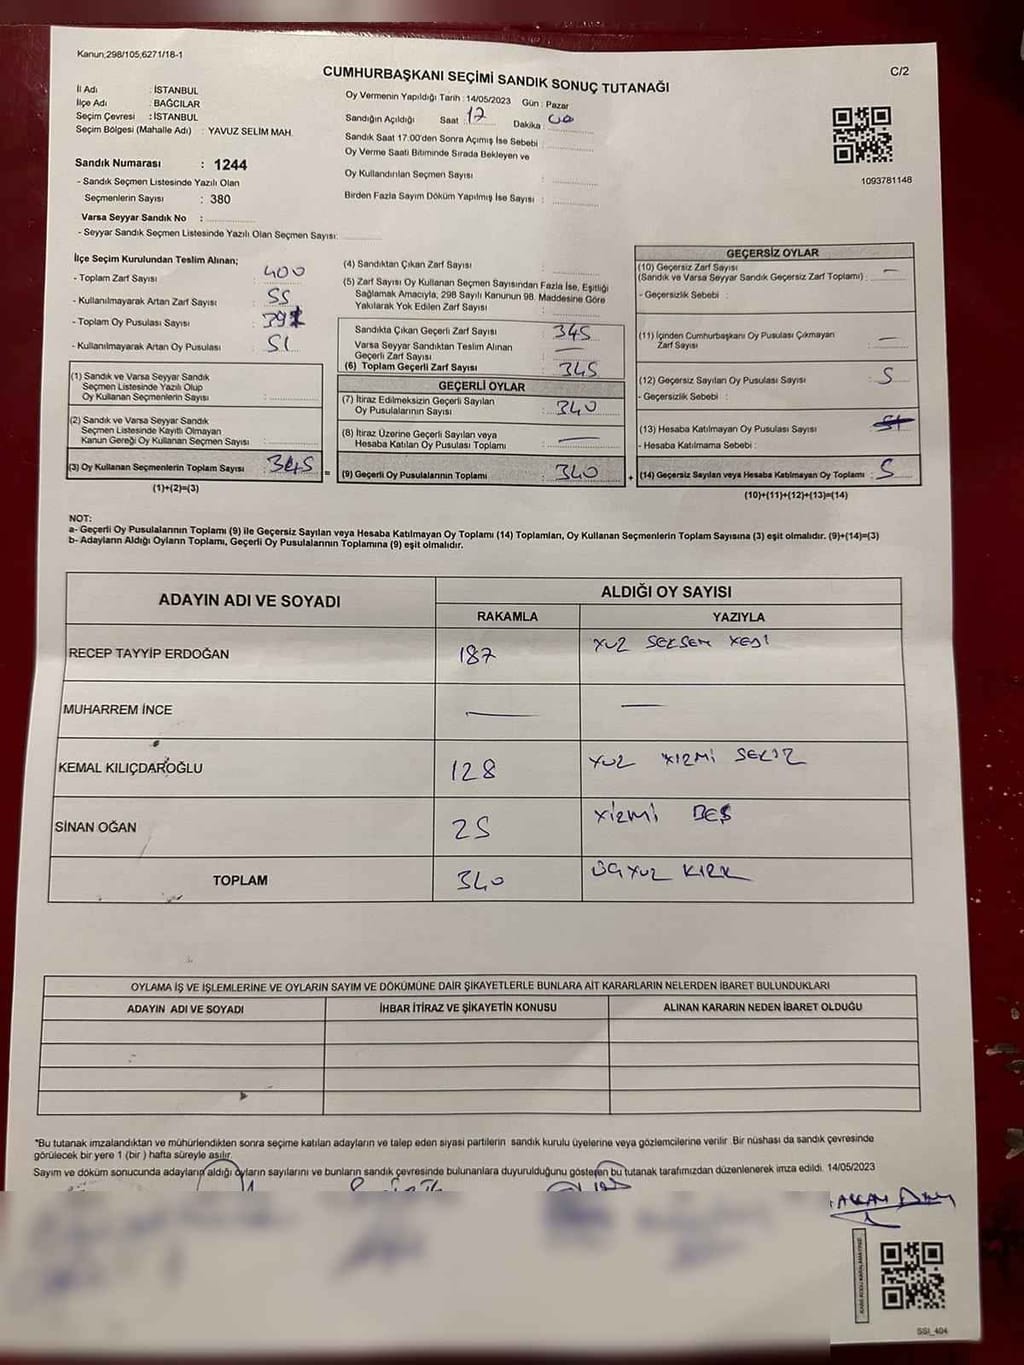 Kanun;298/105,6271/18-1
CUMHURBAŞKANI SEÇİMİ SANDIK SONUÇ TUTANAĞI
C/2
İl Adı : İSTANBUL
İlçe Adı : BAĞCILAR
Seçim Çevresi : İSTANBUL
Seçim Bölgesi (Mahalle Adı) : YAVUZ SELİM MAH.
Sandık Numarası : 1244
- Sandık Seçmen Listesinde Yazılı Olan
Seçmenlerin Sayısı : 380
Varsa Seyyar Sandık No :
- Seyyar Sandık Seçmen Listesinde Yazılı Olan Seçmen Sayısı:
Oy Vermenin Yapıldığı Tarih : 14/05/2023 Gün : Pazar
Sandığın Açıldığı Saat : 17 Dakika : 00
Sandık Saat 17:00'den Sonra Açımış İse Sebebi :
Oy Verme Saati Bitiminde Sırada Bekleyen ve
Oy Kullandırılan Seçmen Sayısı :
Birden Fazla Sayım Döküm Yapılmış İse Sayısı :
1093781148
İlçe Seçim Kurulundan Teslim Alınan;
- Toplam Zarf Sayısı : 400
- Kullanılmayarak Artan Zarf Sayısı : 55
- Toplam Oy Pusulası Sayısı :
- Kullanılmayarak Artan Oy Pusulası : 51
(1) Sandık ve Varsa Seyyar Sandık
Seçmen Listesinde Yazılı Olup
Oy Kullanan Seçmenlerin Sayısı :
(2) Sandık ve Varsa Seyyar Sandık
Seçmen Listesinde Kayıtlı Olmayan
Kanun Gereği Oy Kullanan Seçmen Sayısı :
(3) Oy Kullanan Seçmenlerin Toplam Sayısı : 345
(1)+(2)=(3)
(4) Sandıktan Çıkan Zarf Sayısı :
(5) Zarf Sayısı Oy Kullanan Seçmen Sayısından Fazla İse, Eşitliği
Sağlamak Amacıyla, 298 Sayılı Kanunun 98. Maddesine Göre
Yakılarak Yok Edilen Zarf Sayısı :
Sandıkta Çıkan Geçerli Zarf Sayısı : 345
Varsa Seyyar Sandıktan Teslim Alınan
Geçerli Zarf Sayısı : —
(6) Toplam Geçerli Zarf Sayısı : 345
GEÇERLİ OYLAR
(7) İtiraz Edilmeksizin Geçerli Sayılan
Oy Pusulalarının Sayısı : 340
(8) İtiraz Üzerine Geçerli Sayılan veya
Hesaba Katılan Oy Pusulası Toplamı : —
= (9) Geçerli Oy Pusulalarının Toplamı : 340
GEÇERSİZ OYLAR
(10) Geçersiz Zarf Sayısı
(Sandık ve Varsa Seyyar Sandık Geçersiz Zarf Toplamı) : —
- Geçersizlik Sebebi :
(11) İçinden Cumhurbaşkanı Oy Pusulası Çıkmayan
Zarf Sayısı : —
(12) Geçersiz Sayılan Oy Pusulası Sayısı : 5
- Geçersizlik Sebebi :
(13) Hesaba Katılmayan Oy Pusulası Sayısı :
- Hesaba Katılmama Sebebi :
+ (14) Geçersiz Sayılan veya Hesaba Katılmayan Oy Toplamı : 5
(10)+(11)+(12)+(13)=(14)
NOT:
a- Geçerli Oy Pusulalarının Toplamı (9) ile Geçersiz Sayılan veya Hesaba Katılmayan Oy Toplamı (14) Toplamları, Oy Kullanan Seçmenlerin Toplam Sayısına (3) eşit olmalıdır. (9)+(14)=(3)
b- Adayların Aldığı Oyların Toplamı, Geçerli Oy Pusulalarının Toplamına (9) eşit olmalıdır.
ADAYIN ADI VE SOYADI
ALDIĞI OY SAYISI
RAKAMLA YAZIYLA
RECEP TAYYİP ERDOĞAN 187 YUZ SEKSEN YEDİ
MUHARREM İNCE — —
KEMAL KILIÇDAROĞLU 128 YUZ YIRMİ SEKİZ
SİNAN OĞAN 25 YİRMİ BEŞ
TOPLAM 340 ÜÇYUZ KIRK
OYLAMA İŞ VE İŞLEMLERİNE VE OYLARIN SAYIM VE DÖKÜMÜNE DAİR ŞİKAYETLERLE BUNLARA AİT KARARLARIN NELERDEN İBARET BULUNDUKLARI
ADAYIN ADI VE SOYADI İHBAR İTİRAZ VE ŞİKAYETİN KONUSU ALINAN KARARIN NEDEN İBARET OLDUĞU
*Bu tutanak imzalandıktan ve mühürlendikten sonra seçime katılan adayların ve talep eden siyasi partilerin sandık kurulu üyelerine veya gözlemcilerine verilir. Bir nüshası da sandık çevresinde
görülecek bir yere 1 (bir ) hafta süreyle asılır.
Sayım ve döküm sonucunda adayların aldığı oyların sayılarını ve bunların sandık çevresinde bulunanlara duyurulduğunu gösteren bu tutanak tarafımızdan düzenlenerek imza edildi. 14/05/2023
SSI_404